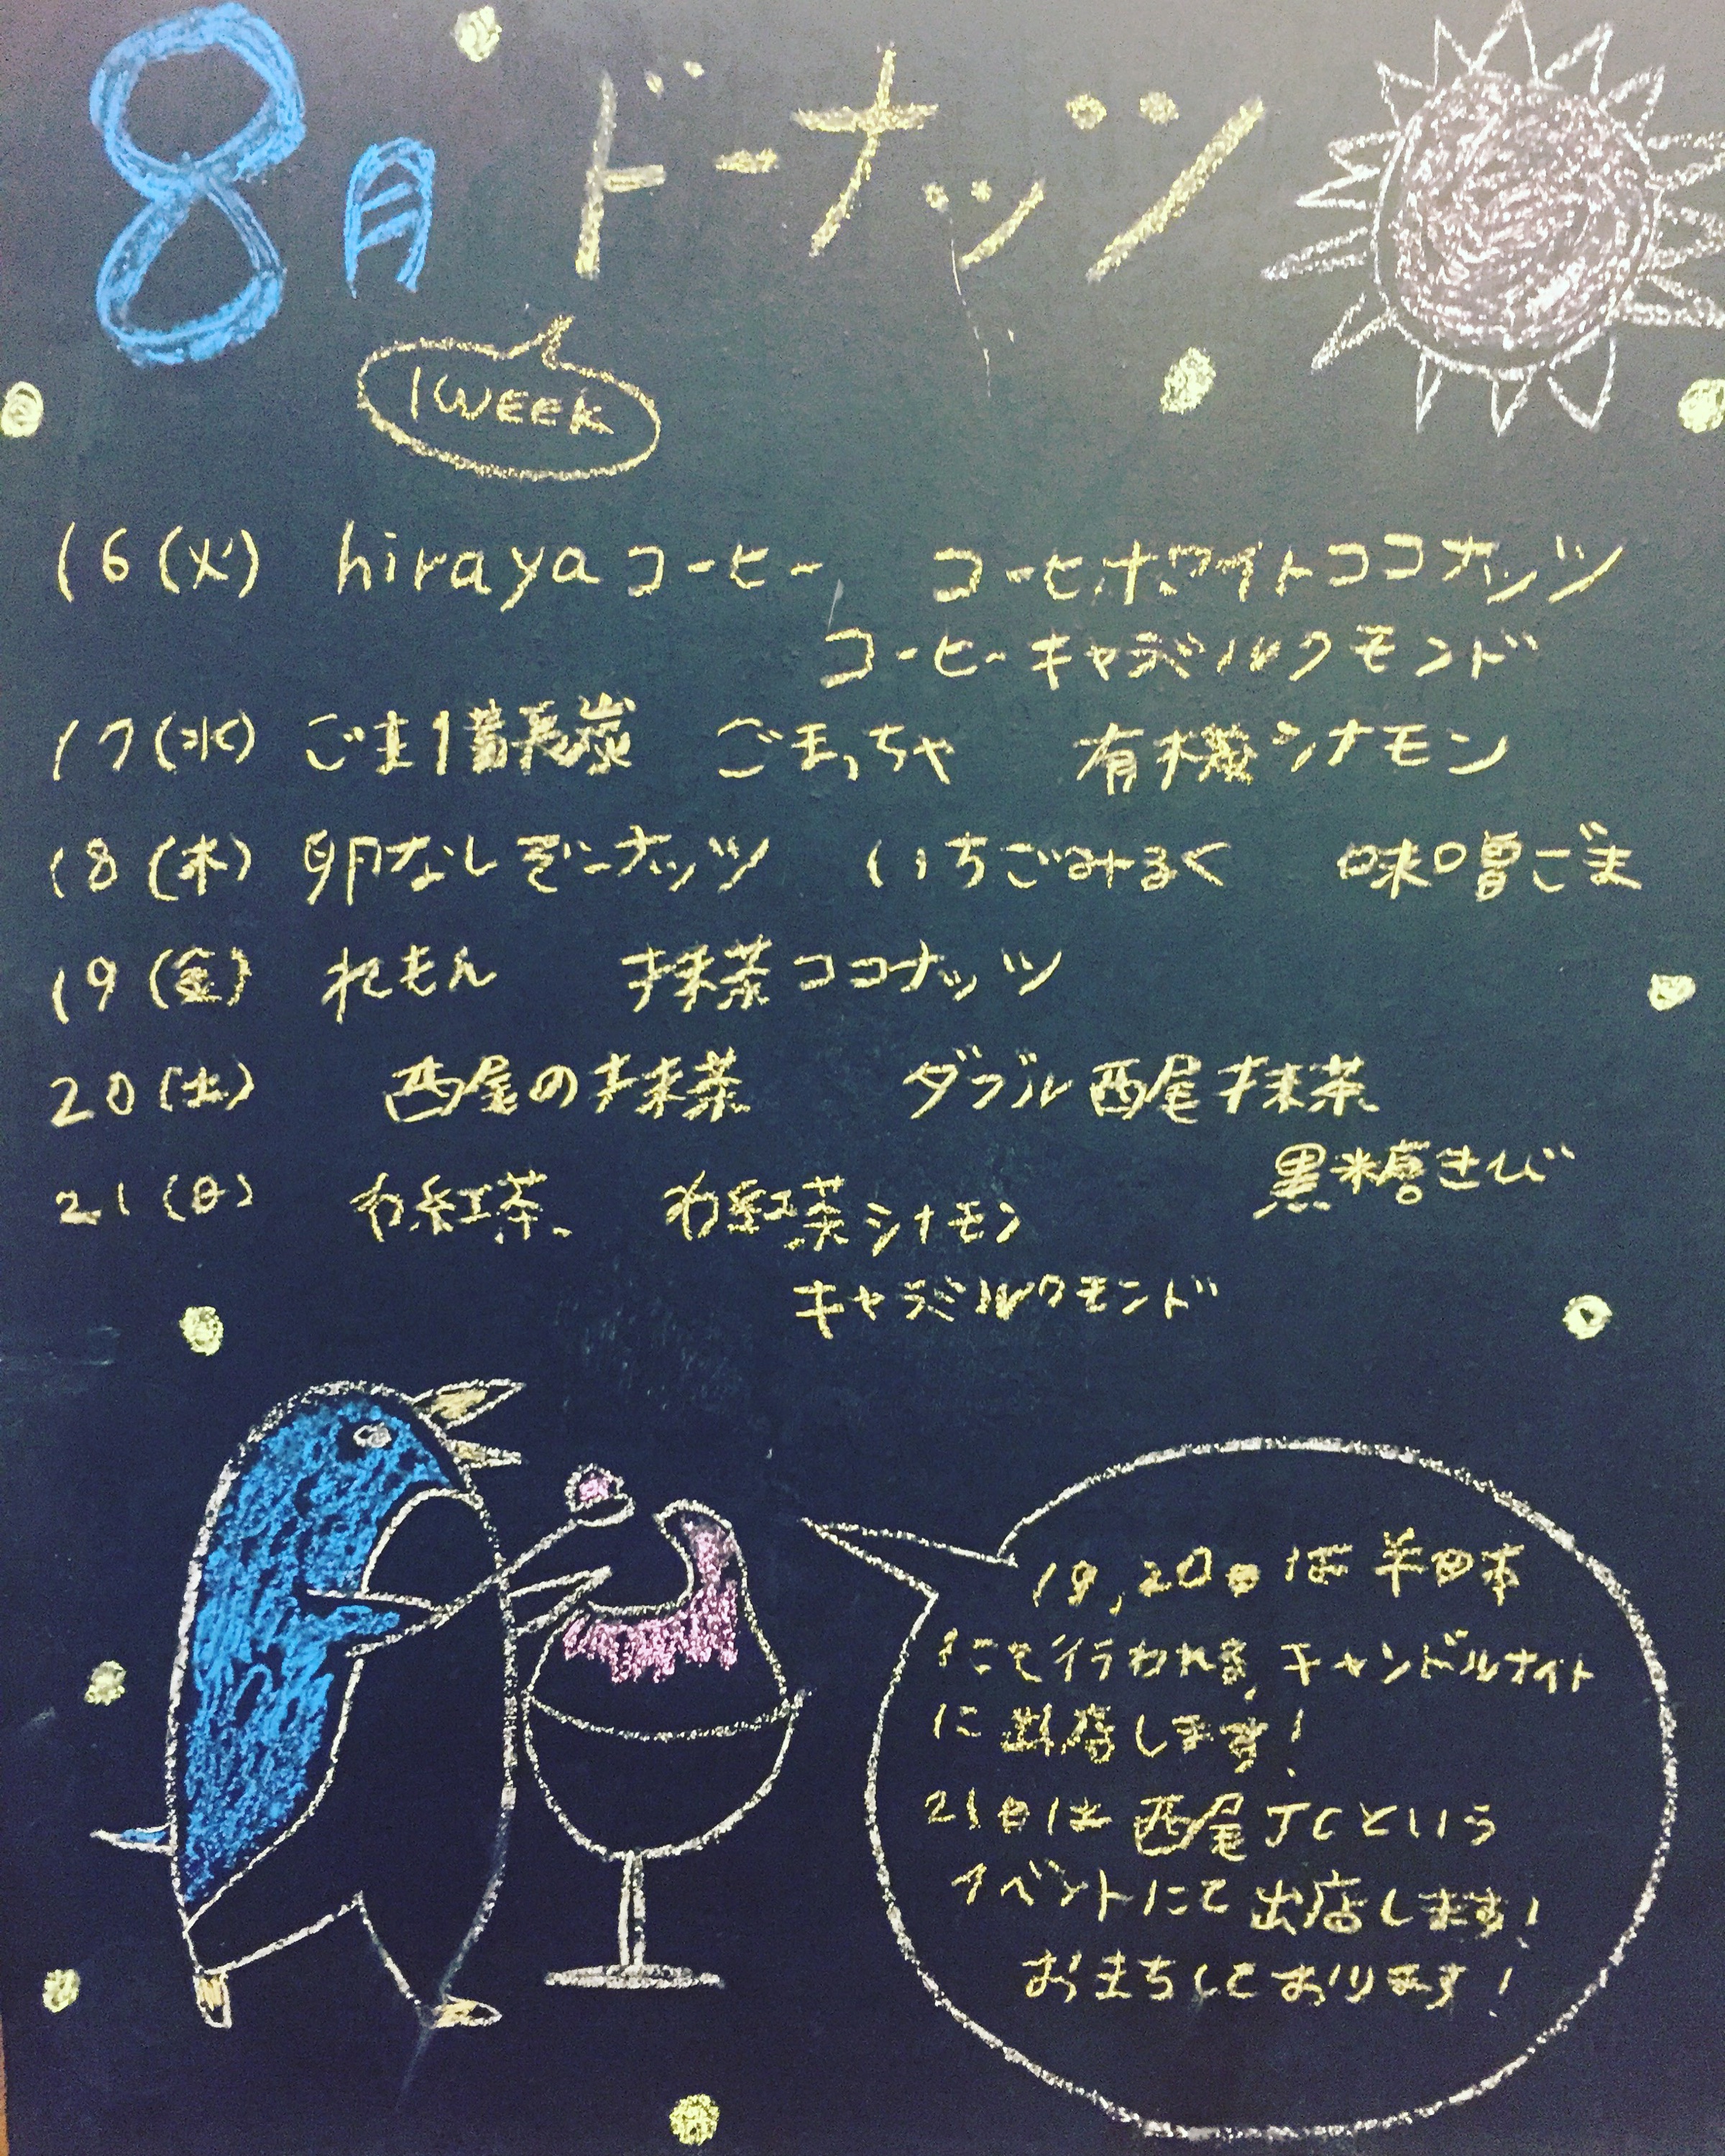 8月 ドーナッツ
1WEEK
16(火) hirayaコーヒー コーヒーホワイトココナッツ
コーヒーキャラメルクモンド
17(水) ごま備長炭 ごまっちゃ 有機シナモン
18(木) 卵なしドーナッツ いちごみるく 味噌ごま
19(金) れもん 抹茶ココナッツ
20(土) 西尾の抹茶 ダブル西尾抹茶
黒糖きび
21(日) わ紅茶 わ紅茶シナモン
キャラメルクモンド
19,20日は半田市
にて行われる キャンドルナイト
に出店します!
21日は西尾JCという
イベントにて出店します!
おまちしております!